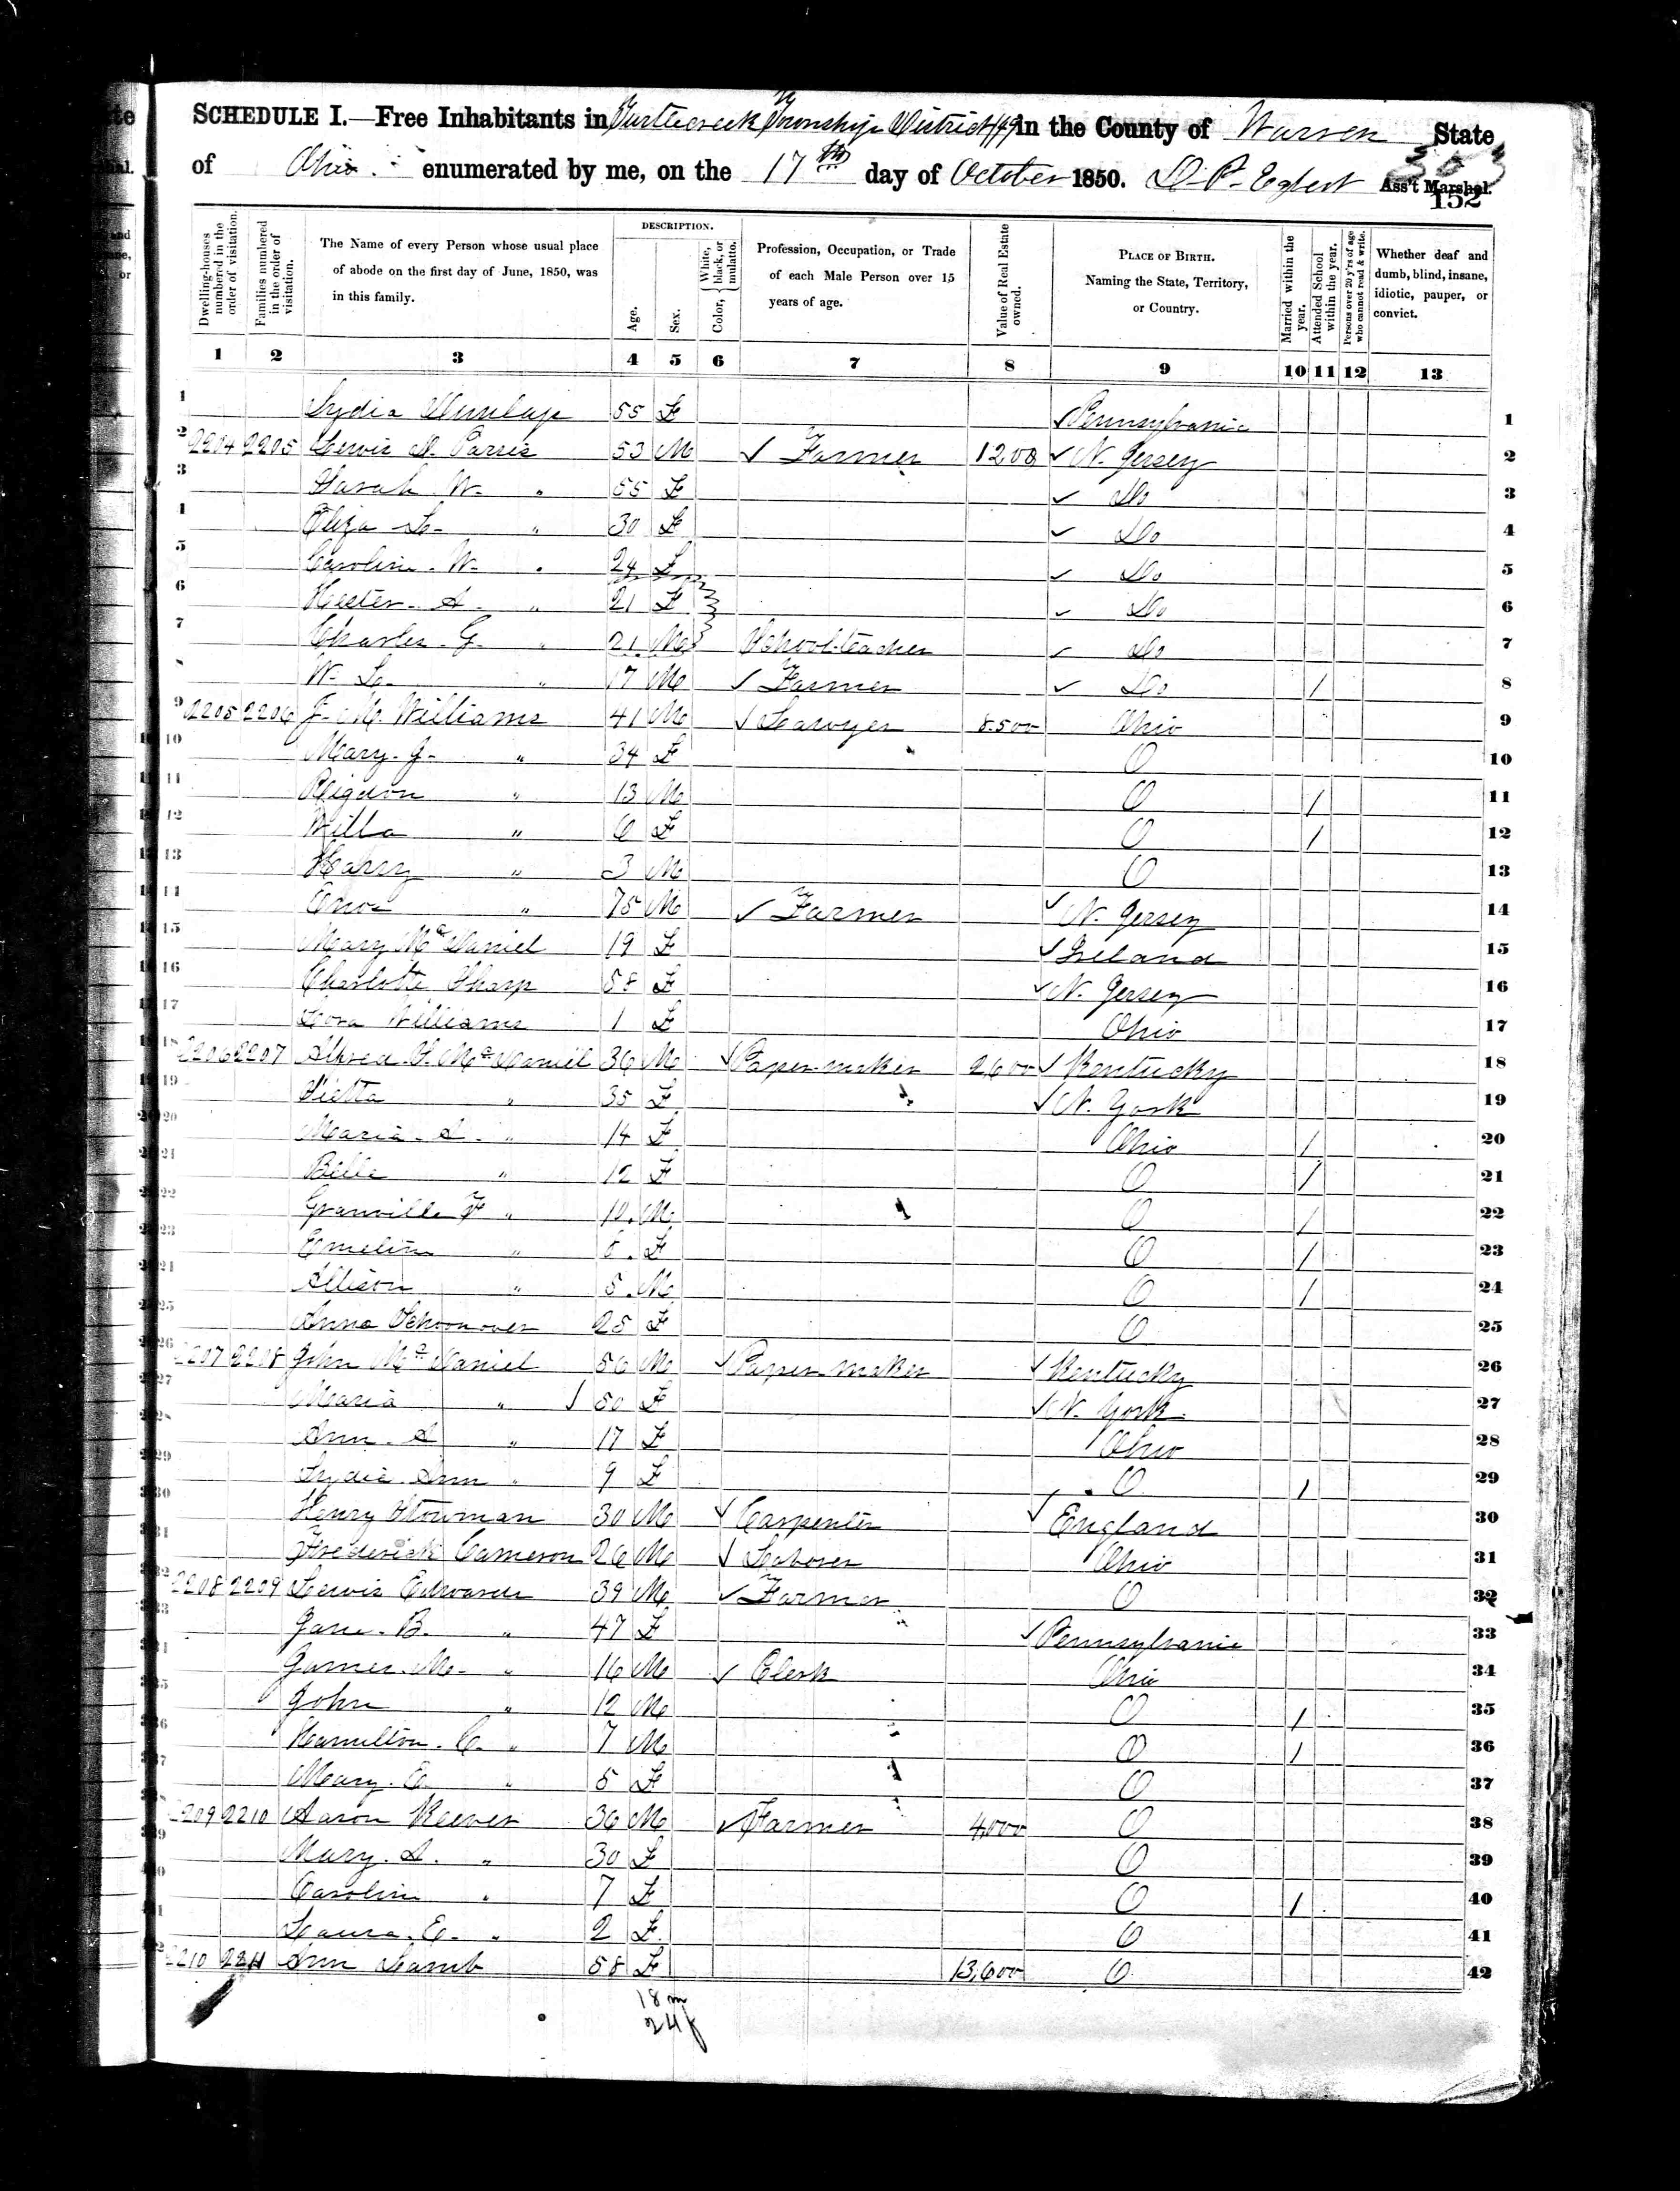 SCHEDULE I.—Free Inhabitants in Turtlecreek Township District 149 in the County of Warren State
of Ohio enumerated by me, on the 17th day of October 1850. D. P. Egbert Ass't Marshal.
152
Dwelling-houses numbered in the order of visitation.
Families numbered in the order of visitation.
The Name of every Person whose usual place of abode on the first day of June, 1850, was in this family.
DESCRIPTION.
Age.
Sex.
Color, { White, black, or mulatto.
Profession, Occupation, or Trade of each Male Person over 15 years of age.
Value of Real Estate owned.
PLACE OF BIRTH. Naming the State, Territory, or Country.
Married within the year.
Attended School within the year.
Persons over 20 y'rs of age who cannot read & write.
Whether deaf and dumb, blind, insane, idiotic, pauper, or convict.
1 2 3 4 5 6 7 8 9 10 11 12 13
1 Lydia Dunlap 55 F Pennsylvania 1
2 2204 2205 Lewis D. Parris 53 M Farmer 1200 N. Jersey 2
3 Sarah W. " 55 F Do 3
4 Eliza L. " 30 F Do 4
5 Caroline W. " 24 F Do 5
6 Hester A. " 21 F Do 6
7 Charles G. " 21 M School-teacher Do 7
8 W. L. " 17 M Farmer Do / 8
9 2205 2206 J. M. Williams 41 M Lawyer 8.500 Ohio 9
10 Mary J. " 34 F O 10
11 Rigdon " 13 M O / 11
12 Willa " 6 F O / 12
13 Harry " 3 M O 13
14 Enos " 75 M Farmer N. Jersey 14
15 Mary McDaniel 19 F Ireland 15
16 Charlotte Sharp 58 F N. Jersey 16
17 Williams 1 F Ohio 17
18 2206 2207 McDaniel 36 M Paper maker 2600 Kentucky 18
19 " 35 F N. York 19
20 Maria S. " 14 F Ohio / 20
21 Belle " 12 F O / 21
22 Granville F " 10 M O / 22
23 Emeline " 6 F O / 23
24 Allison " 5 M O / 24
25 Anna Schoonover 25 F O 25
26 2207 2208 John McDaniel 56 M Paper maker Kentucky 26
27 Maria " 50 F N. York 27
28 Ann S " 17 F Ohio 28
29 Lydia Ann " 9 F O / 29
30 Henry Stowman 30 M Carpenter England 30
31 Frederick Cameron 26 M Laborer Ohio 31
32 2208 2209 Lewis Edwards 39 M Farmer O 32
33 Jane B. " 47 F Pennsylvania 33
34 James M. " 16 M Clerk Ohio 34
35 John " 12 M O / 35
36 Hamilton C. " 7 M O / 36
37 Mary E " 5 F O 37
38 2209 2210 Aaron Reever 36 M Farmer 4,000 O 38
39 Mary A. " 30 F O 39
40 Caroline " 7 F O / 40
41 Laura E. " 2 F O 41
42 2210 2211 Ann Lamb 58 F 13,600 O 42
18 m
24 f